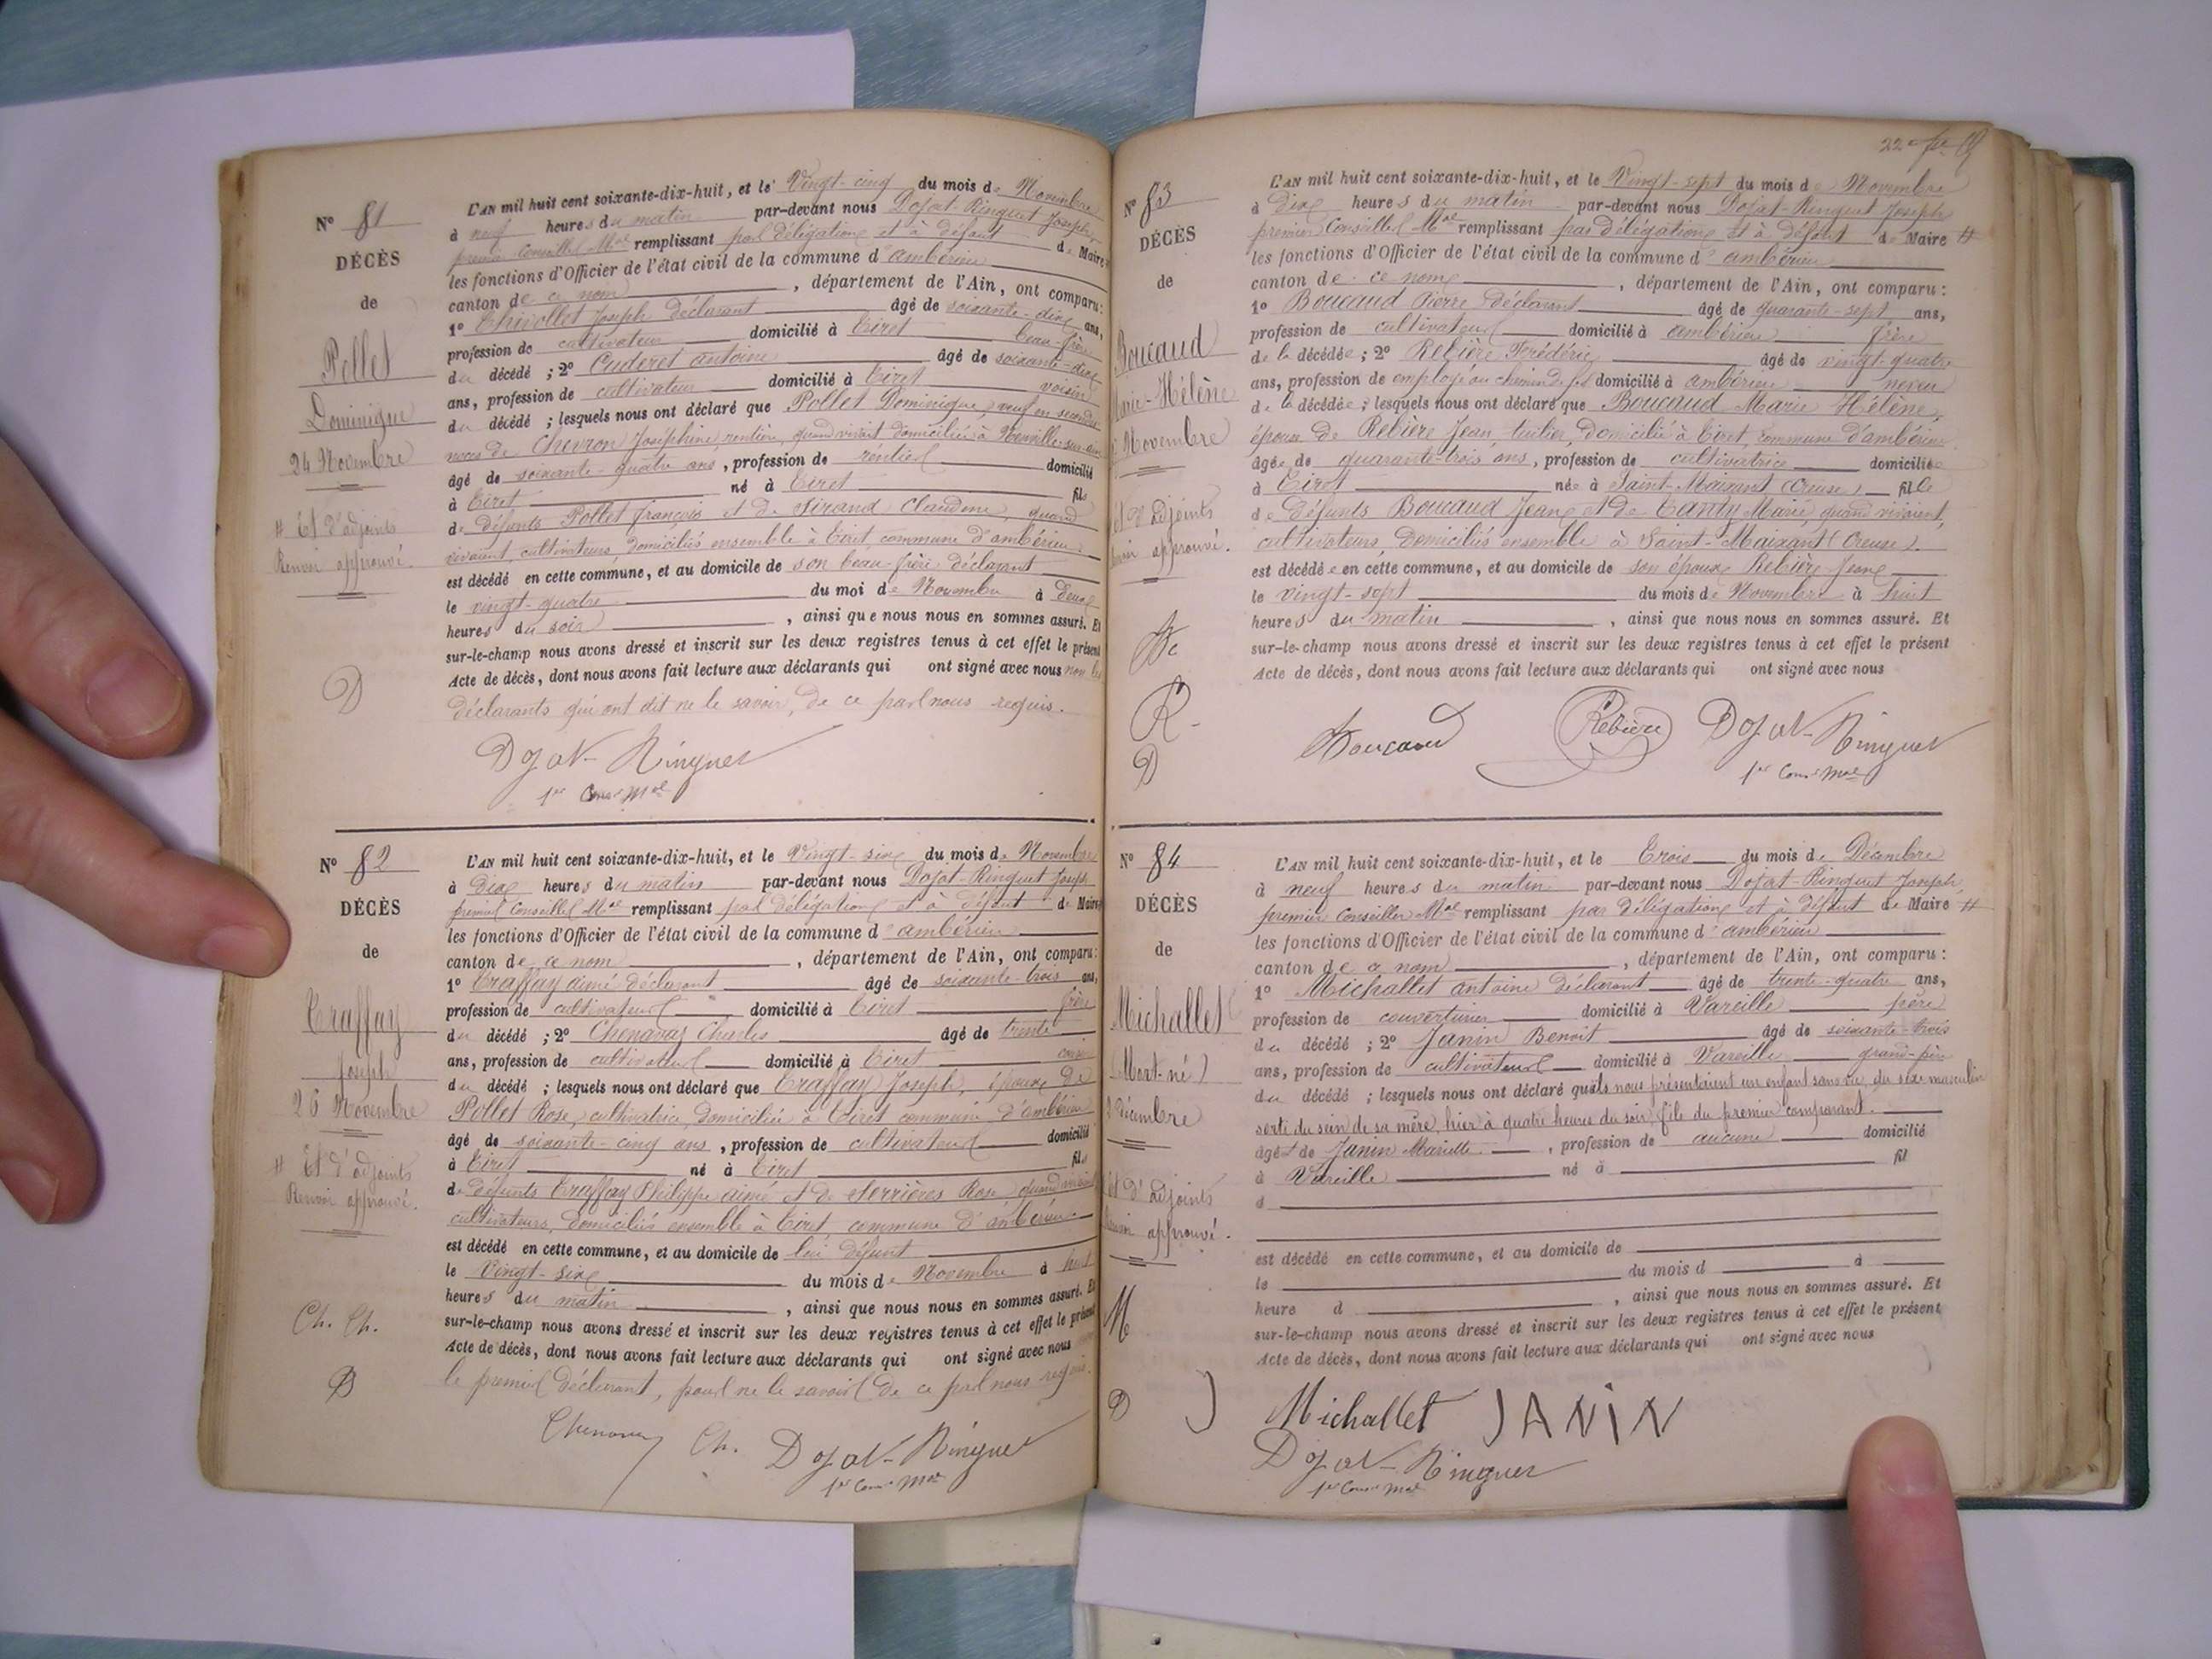 N° 81
DÉCÈS
de
Pollet
Dominique
24 Novembre
# Et d'adjoints
Renvoi approuvé.
D
L'AN mil huit cent soixante-dix-huit, et le Vingt-cinq du mois de Novembre
à neuf heures du matin par-devant nous Dojat-Ringuet Joseph,
premier Conseiller Mal remplissant par délégation et à défaut de Maire
les fonctions d'Officier de l'état civil de la commune d'ambérieu
canton de ce nom, département de l'Ain, ont comparu:
1° Chivollet Joseph déclarant âgé de soixante-dix ans,
profession de cultivateur domicilié à Tiret beau-frère
du décédé ; 2° Cuderet antoine âgé de soixante-dix
ans, profession de cultivateur domicilié à Tiret voisin
du décédé ; lesquels nous ont déclaré que Pollet Dominique, veuf en secondes
noces de Chevron Joséphine rentière, quand vivait domiciliée à Neuville-sur-ain
âgé de soixante-quatre ans, profession de rentier domicilié
à Tiret né à Tiret fils
de défunts Pollet françois et de Sirand Claudine, quand
vivaient, cultivateurs, domiciliés ensemble à Tiret commune d'ambérieu.
est décédé en cette commune, et au domicile de son beau-frère déclarant
le vingt-quatre du moi de Novembre à deux
heures du soir, ainsi que nous nous en sommes assuré. Et
sur-le-champ nous avons dressé et inscrit sur les deux registres tenus à cet effet le présent
Acte de décès, dont nous avons fait lecture aux déclarants qui ont signé avec nous non les
déclarants qui ont dit ne le savoir, de ce par nous requis.
Dojat-Ringuet
1er Cons. Mal
N° 82
DÉCÈS
de
Traffay
Joseph
26 Novembre
# Et d'adjoints
Renvoi approuvé.
Ch. Ch.
D
L'AN mil huit cent soixante-dix-huit, et le Vingt-six du mois de Novembre
à dix heures du matin par-devant nous Dojat-Ringuet Joseph
premier Conseiller Mal remplissant par délégation et à défaut de Maire
les fonctions d'Officier de l'état civil de la commune d'ambérieu
canton de ce nom, département de l'Ain, ont comparu:
1° Traffay aimé déclarant âgé de soixante-trois ans,
profession de cultivateur domicilié à Tiret frère
du décédé ; 2° Chenavaz Charles âgé de trente
ans, profession de cultivateur domicilié à Tiret
du décédé ; lesquels nous ont déclaré que Traffay Joseph, époux de
Pollet Rose, cultivatrice domiciliée à Tiret commune d'ambérieu
âgé de soixante-cinq ans, profession de cultivateur domicilié
à Tiret né à Tiret fils
de défunts Traffay Philippe aimé et de Serrières Rose, quand vivaient
cultivateurs, domiciliés ensemble à Tiret, commune d'ambérieu
est décédé en cette commune, et au domicile de lui défunt
le Vingt-six du mois de Novembre à huit
heures du matin, ainsi que nous nous en sommes assuré. Et
sur-le-champ nous avons dressé et inscrit sur les deux registres tenus à cet effet le présent
Acte de décès, dont nous avons fait lecture aux déclarants qui ont signé avec nous
le premier déclarant, pour ne le savoir de ce par nous requis.
Chenavaz Ch. Dojat-Ringuet
1er Cons. Mal
22
N° 83
DÉCÈS
de
Boucaud
Marie-Hélène
Novembre
et d'adjoints
Renvoi approuvé.
R
D
L'AN mil huit cent soixante-dix-huit, et le Vingt-sept du mois de Novembre
à dix heures du matin par-devant nous Dojat-Ringuet Joseph
premier Conseiller Mal remplissant par délégation et à défaut de Maire #
les fonctions d'Officier de l'état civil de la commune d'ambérieu
canton de ce nom, département de l'Ain, ont comparu:
1° Boucaud Pierre déclarant âgé de quarante-sept ans,
profession de cultivateur domicilié à ambérieu frère
de la décédée ; 2° Rebière Frédéric âgé de vingt-quatre
ans, profession de employé au chemin de fer domicilié à ambérieu neveu
de la décédée ; lesquels nous ont déclaré que Boucaud Marie Hélène,
épouse de Rebière Jean, tuilier, domicilié à Tiret, commune d'ambérieu
âgée de quarante-trois ans, profession de cultivatrice domiciliée
à Tiret née à Saint-Maixant (Creuse) fille
de défunts Boucaud Jean et de Tanty Marie, quand vivaient,
cultivateurs, domiciliés ensemble à Saint-Maixant (Creuse).
est décédée en cette commune, et au domicile de son époux Rebière Jean
le vingt-sept du mois de Novembre à huit
heures du matin, ainsi que nous nous en sommes assuré. Et
sur-le-champ nous avons dressé et inscrit sur les deux registres tenus à cet effet le présent
Acte de décès, dont nous avons fait lecture aux déclarants qui ont signé avec nous
Boucaud Rebière Dojat-Ringuet
1er Cons. Mal
N° 84
DÉCÈS
de
Michallet
(Mort-né)
Décembre
et d'adjoints
Renvoi approuvé.
M
J
D
L'AN mil huit cent soixante-dix-huit, et le Trois du mois de Décembre
à neuf heures du matin par-devant nous Dojat-Ringuet Joseph,
premier Conseiller Mal remplissant par délégation et à défaut de Maire #
les fonctions d'Officier de l'état civil de la commune d'ambérieu
canton de ce nom, département de l'Ain, ont comparu:
1° Michallet antoine déclarant âgé de trente-quatre ans,
profession de couverturier domicilié à Vareille père
du décédé ; 2° Janin Benoit âgé de soixante-trois
ans, profession de cultivateur domicilié à Vareille grand-père
du décédé ; lesquels nous ont déclaré qu'ils nous présentaient un enfant sans vie, du sexe masculin
sorti du sein de sa mère, hier à quatre heures du soir, fils du premier comparant.
âgé et de Janin Mariette, profession de aucune domicilié
à Vareille né à fil
d
est décédé en cette commune, et au domicile de
le du mois d à
heure d, ainsi que nous nous en sommes assuré. Et
sur-le-champ nous avons dressé et inscrit sur les deux registres tenus à cet effet le présent
Acte de décès, dont nous avons fait lecture aux déclarants qui ont signé avec nous
Michallet JANIN
Dojat-Ringuet
1er Cons. Mal